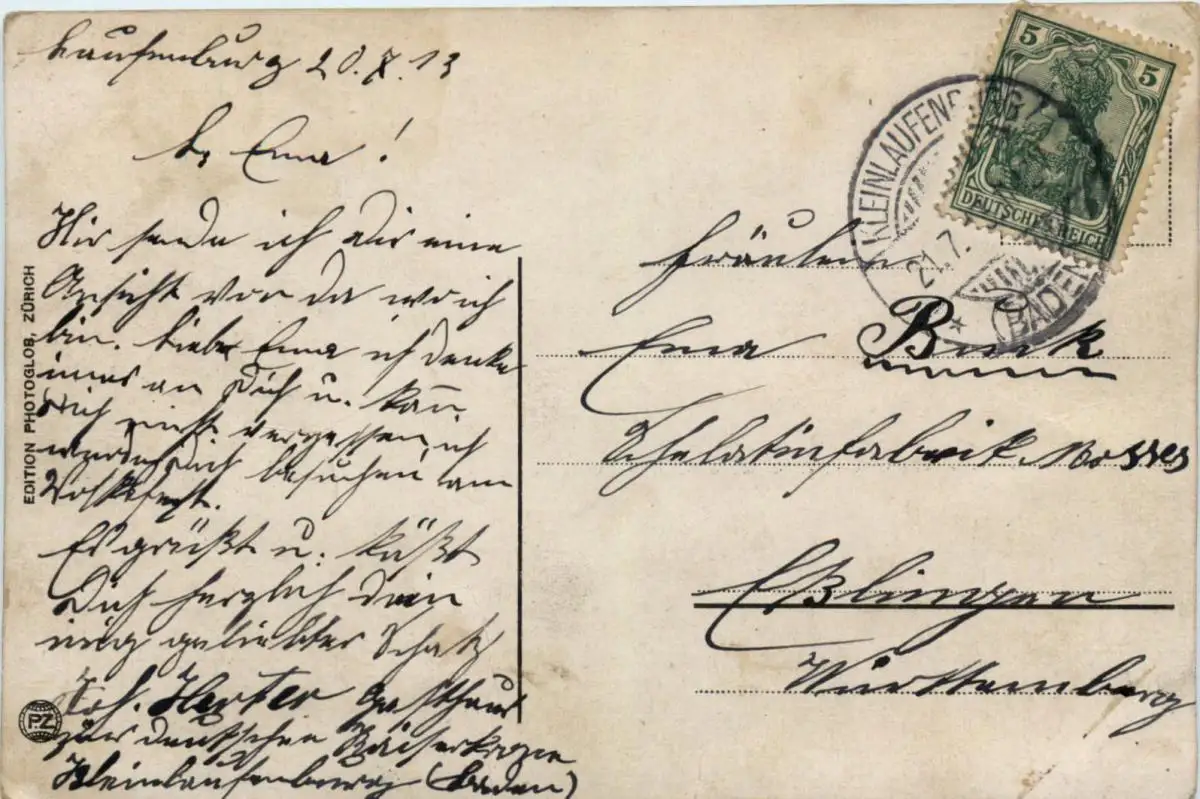 Laufenburg 20.7.13
L. Ema!
Hir sende ich Dir eine
Ansicht von da wo ich
bin. Liebe Ema ich denke
imer an Dich u. kan
Dich nicht vergessen ich
werde Dich besuchen am
Volksfest.
Es grüßt u. küßt
Dich herzlich Dein
ewig geliebter Schatz
Joh. Herter Gasthaus
zur deutschen Kaiserkrone
Kleinlaufenburg (Baden)
EDITION PHOTOGLOB, ZÜRICH
PZ
5 5
DEUTSCHES REICH
KLEINLAUFENBURG
21.7.
(BADEN)
Fräulein
Ema Bink
Schelatinfabrik
Eßlingen
Württemberg